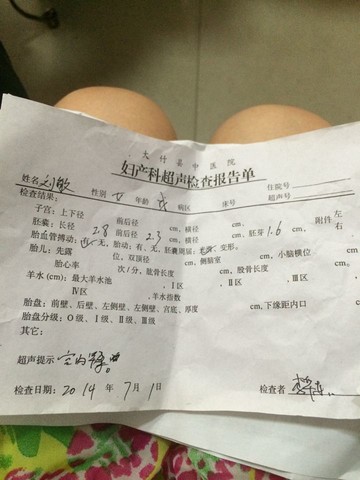 大竹县中医院
妇产科超声检查报告单
姓名 刘敏 性别 女 年龄 病区 床号 住院号 超声号
检查结果:
子宫:上下径 前后径 cm,横径 cm, 附件 左 右
胚囊:长径 2.8 前后径 2.3 cm,横径 cm,胚芽 1.6 cm,
胎血管搏动: 无,胎动:有、无,胚囊周届: 变形。
胎儿:先露 位,双顶径 cm,侧脑室 cm,小脑横径 cm,
胎心率 次/分,肱骨长度 cm,股骨长度 cm
羊水(cm):最大羊水池 ,Ⅰ区 ,Ⅱ区 ,Ⅲ区
Ⅳ区 ,羊水指数
胎盘:前壁、后壁、左侧壁、左侧壁、宫底、厚度 cm,下缘距内口
胎盘分级:O级、Ⅰ级、Ⅱ级、Ⅲ级
其它:
超声提示 宫内早孕
检查日期:2014年7月1日 检查者